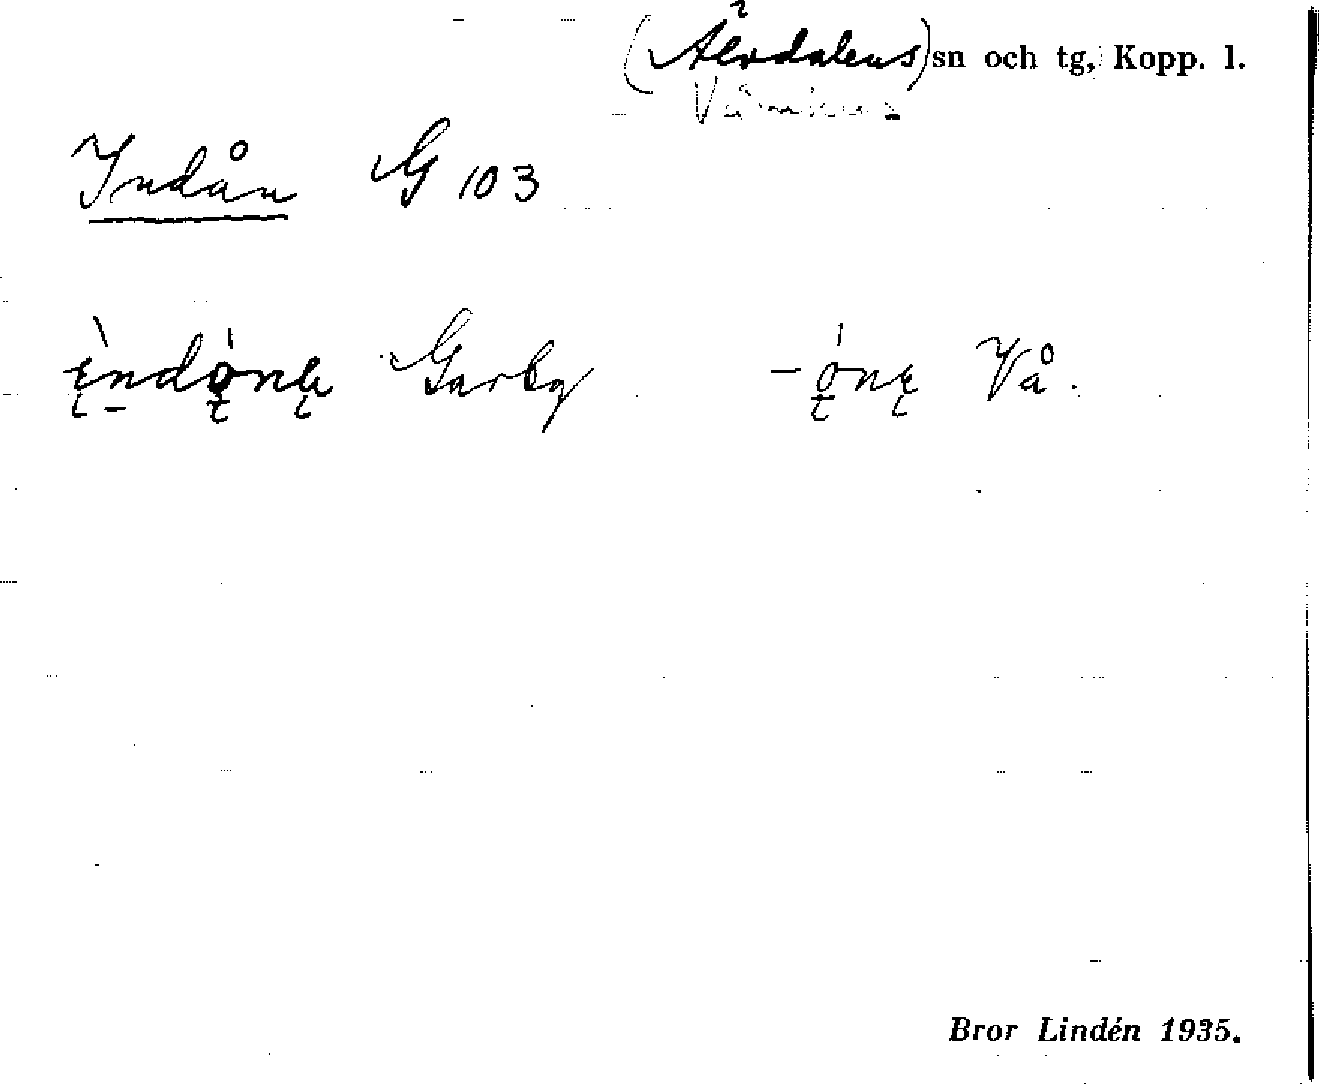 (Älvdalens) sn och tg, Kopp. l.
Våmhus
Indån G 103
ı̨̀ndǫ́nę Garby -ǫ́nę Vå.
Bror Lindén 1935.